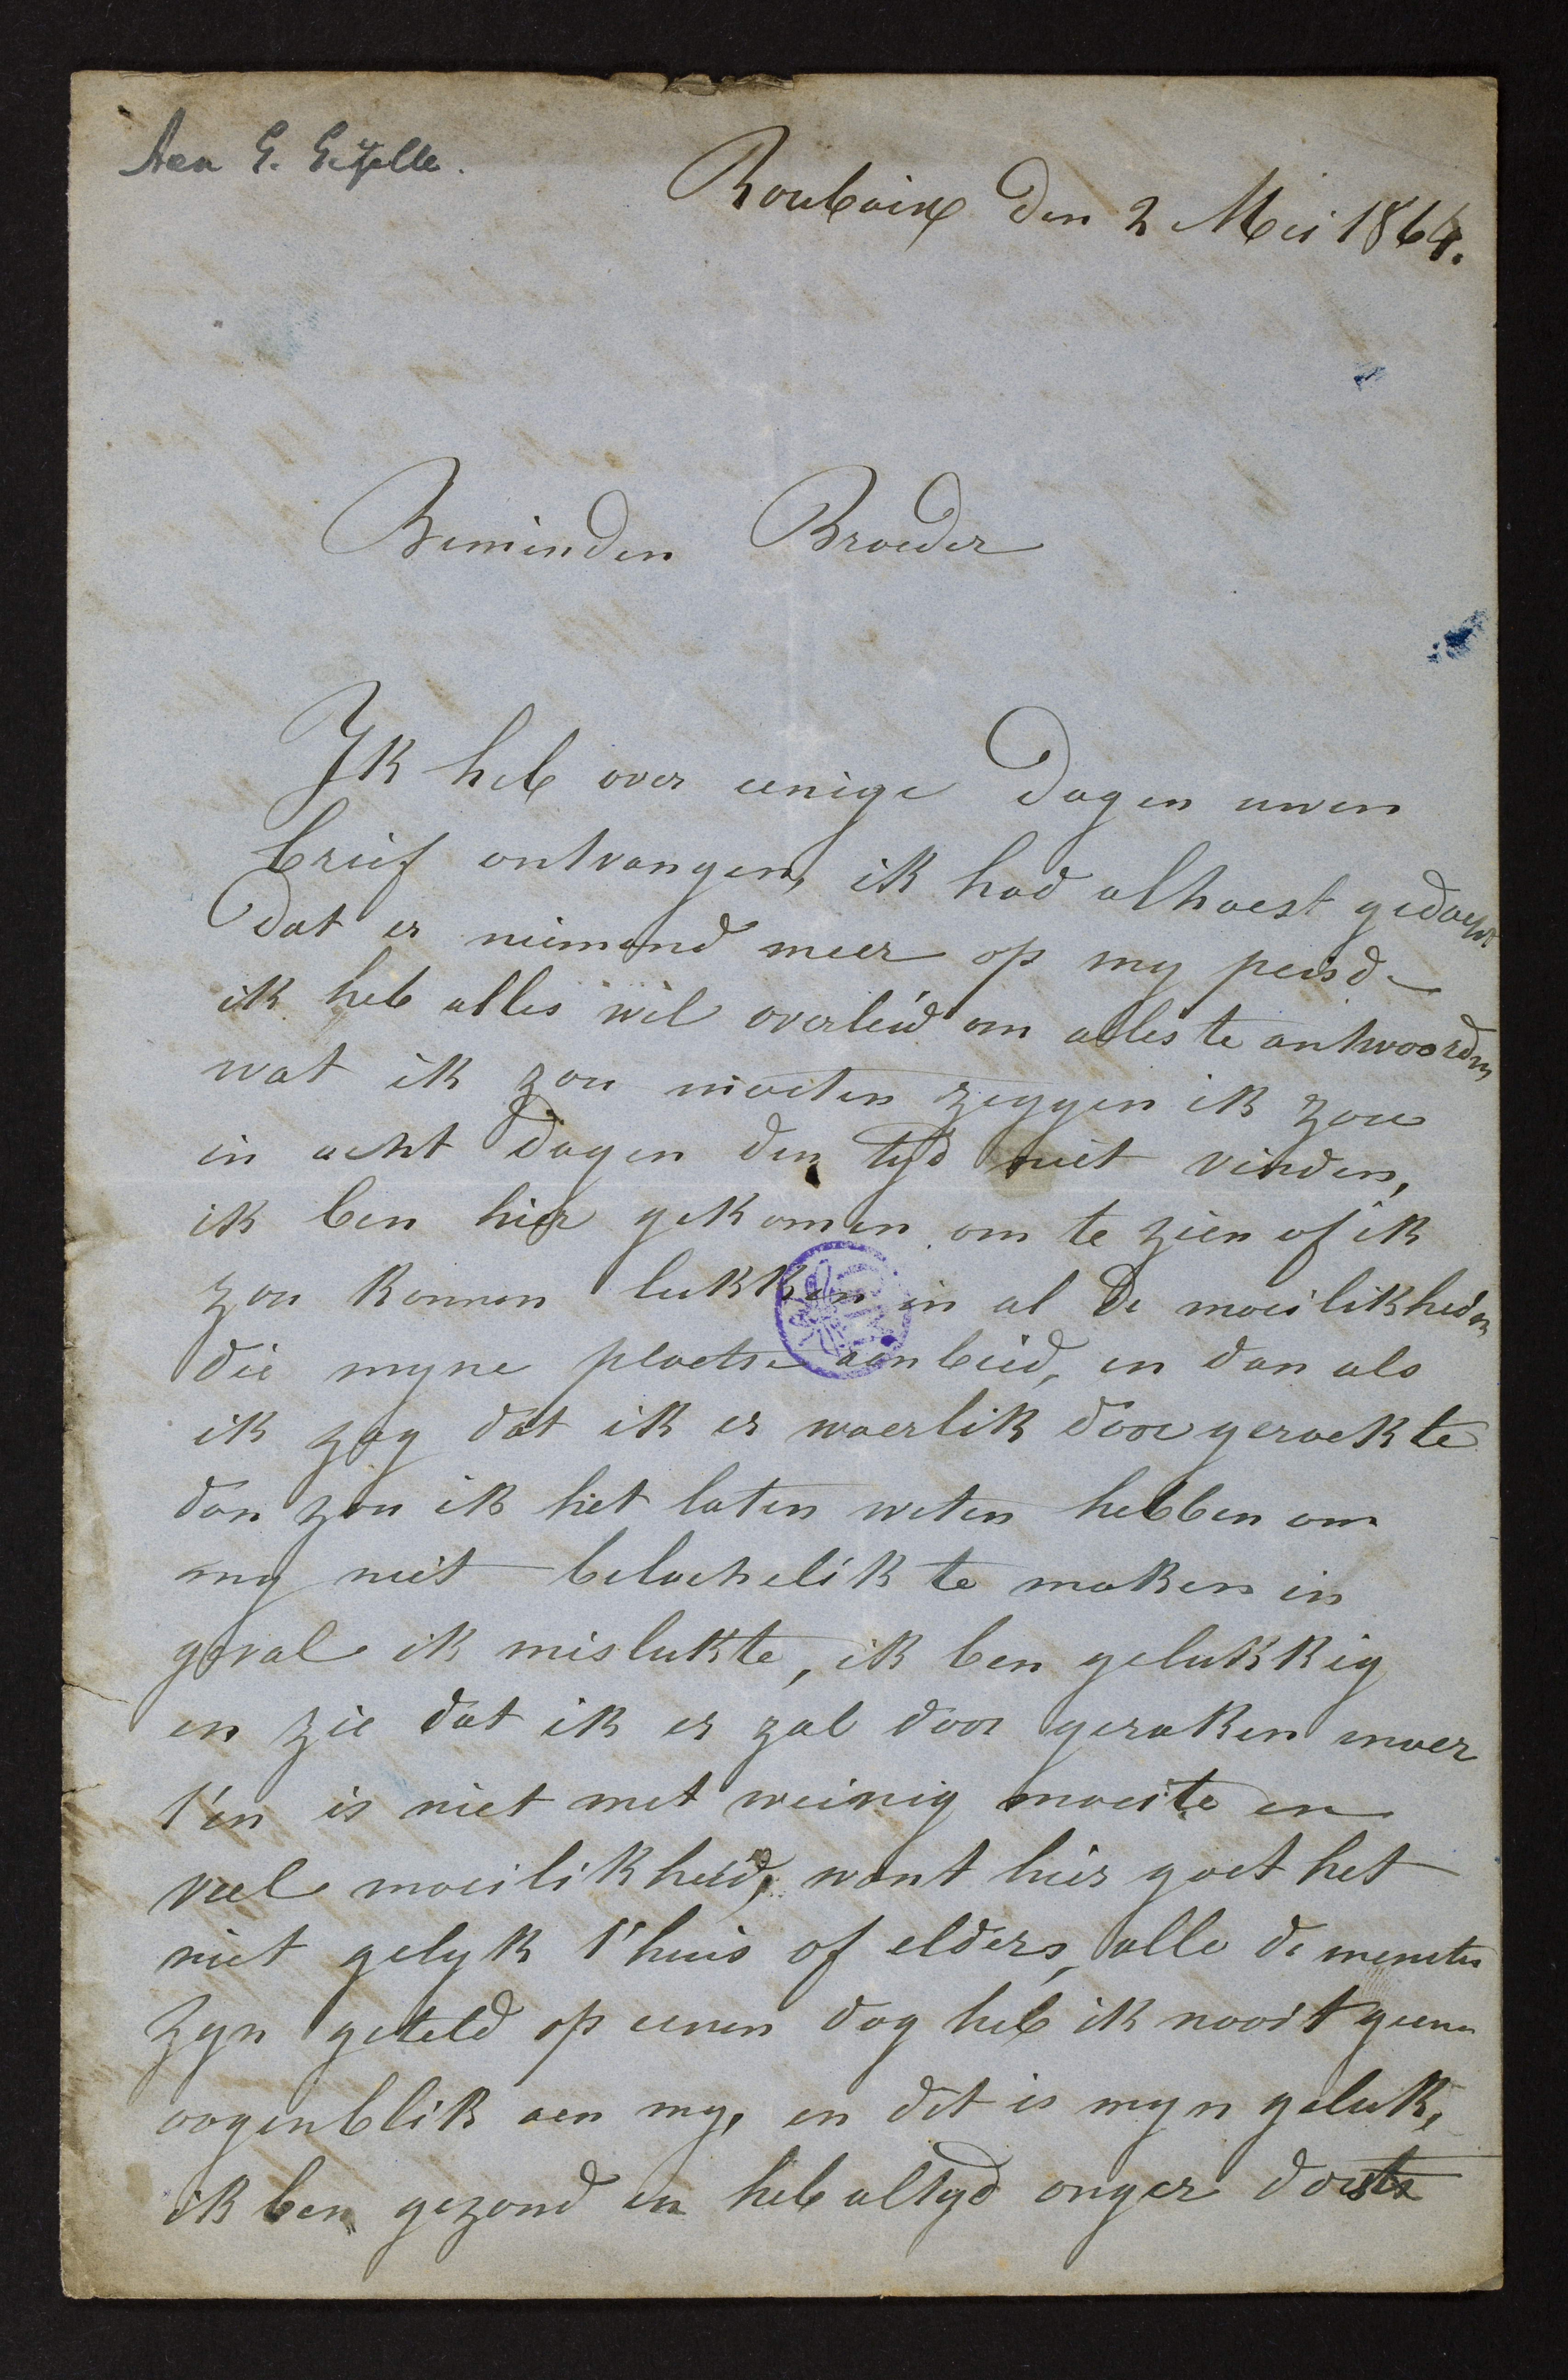 Aen G. Gezelle.
Roubaix den 2 Mei 1864.
Beminden Broeder
Ik heb over eenige dagen uwen
brief ontvangen, ik had alhaest gedacht
dat er niemand meer op my peisde
ik heb alles wel overleid om alles te antwoorden
wat ik zou moeten zeggen ik zou
in acht dagen den tyd niet vinden,
ik ben hier gekomen om te zien of ik
zou konnen lukken in al de moeilikheden
die myne plaetse aenbied, en dan als
ik zag dat ik er waerlik door geraekte
dan zou ik het laten weten hebben om
my niet belachelik te maken in
geval ik mislukte, ik ben gelukkig
en zie dat ik er zal door geraken maer
t'en is niet met weinig moeite en
veel moeilikheid, want hier gaet het
niet gelyk t'huis of elders, alle de menuten
zyn geteld op eenen dag heb ik nooit geenen
oogenblik aen my, en dit is myn geluk,
ik ben gezond en heb altyd onger dorste